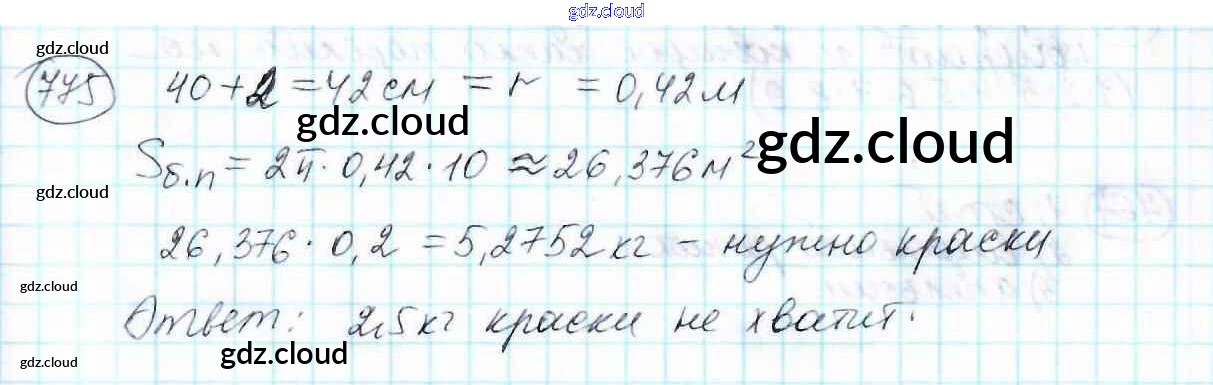 gdz.cloud
gdz.cloud
775 40+2=42см = r = 0,42м
gdz.cloud
gdz.cloud
Sб.п = 2π · 0,42 · 10 ≈ 26,376м²
gdz.cloud
26,376 · 0,2 = 5,2752кг – нужно краски
gdz.cloud
Ответ: 2,5кг краски не хватит.
gdz.cloud
gdz.cloud